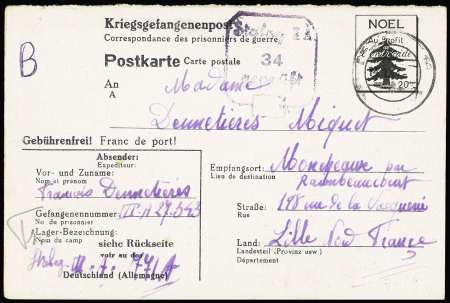 Kriegsgefangenenpost
Correspondance des prisonniers de guerre
Postkarte Carte postale
B
Stalag
34
geprüft
NOEL
Au Profit
20
An
A
Madame
Dennetières Miquet
Gebührenfrei! Franc de port!
Absender:
Expediteur:
Vor- und Zuname:
Nom et prénom
François Dennetières
Gefangenennummer: III A 27.543
No du prisonnier
Lager-Bezeichnung:
Nom du camp
siehe Rückseite
voir au dos
Stalag
Deutschland (Allemagne)
Empfangsort: par
Lieu de destination
Raimbeaucourt
Straße: 198 rue de la
Rue
Land: Lille Nord France
Landesteil (Provinz usw.)
Département